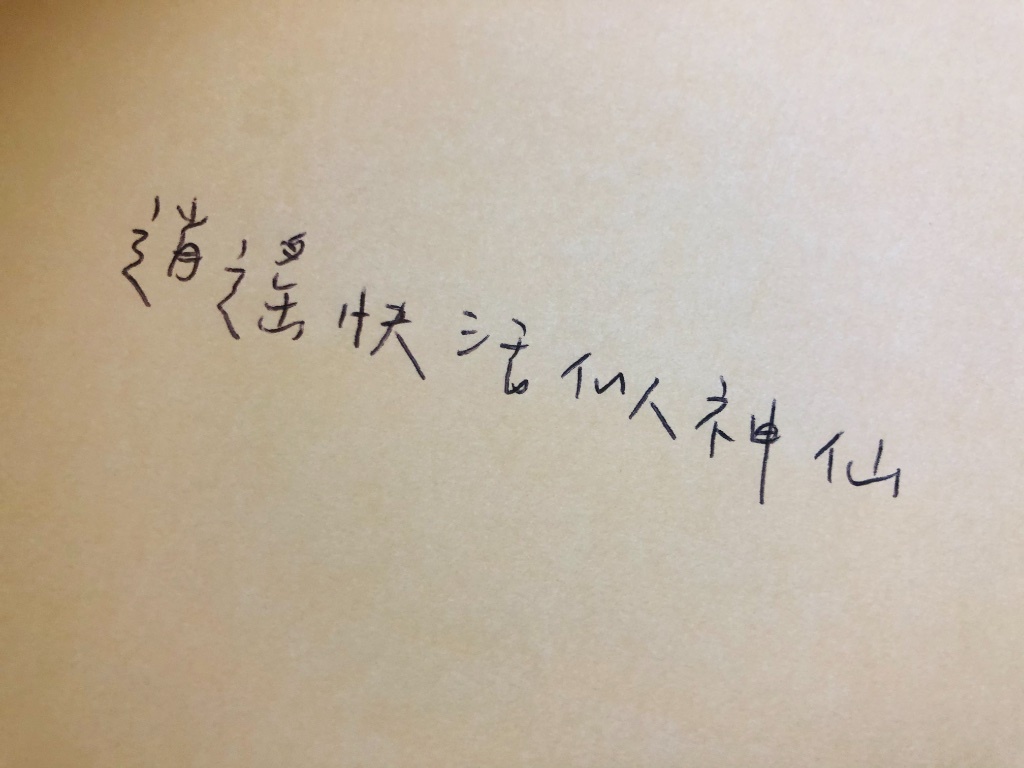 逍遥快活似神仙